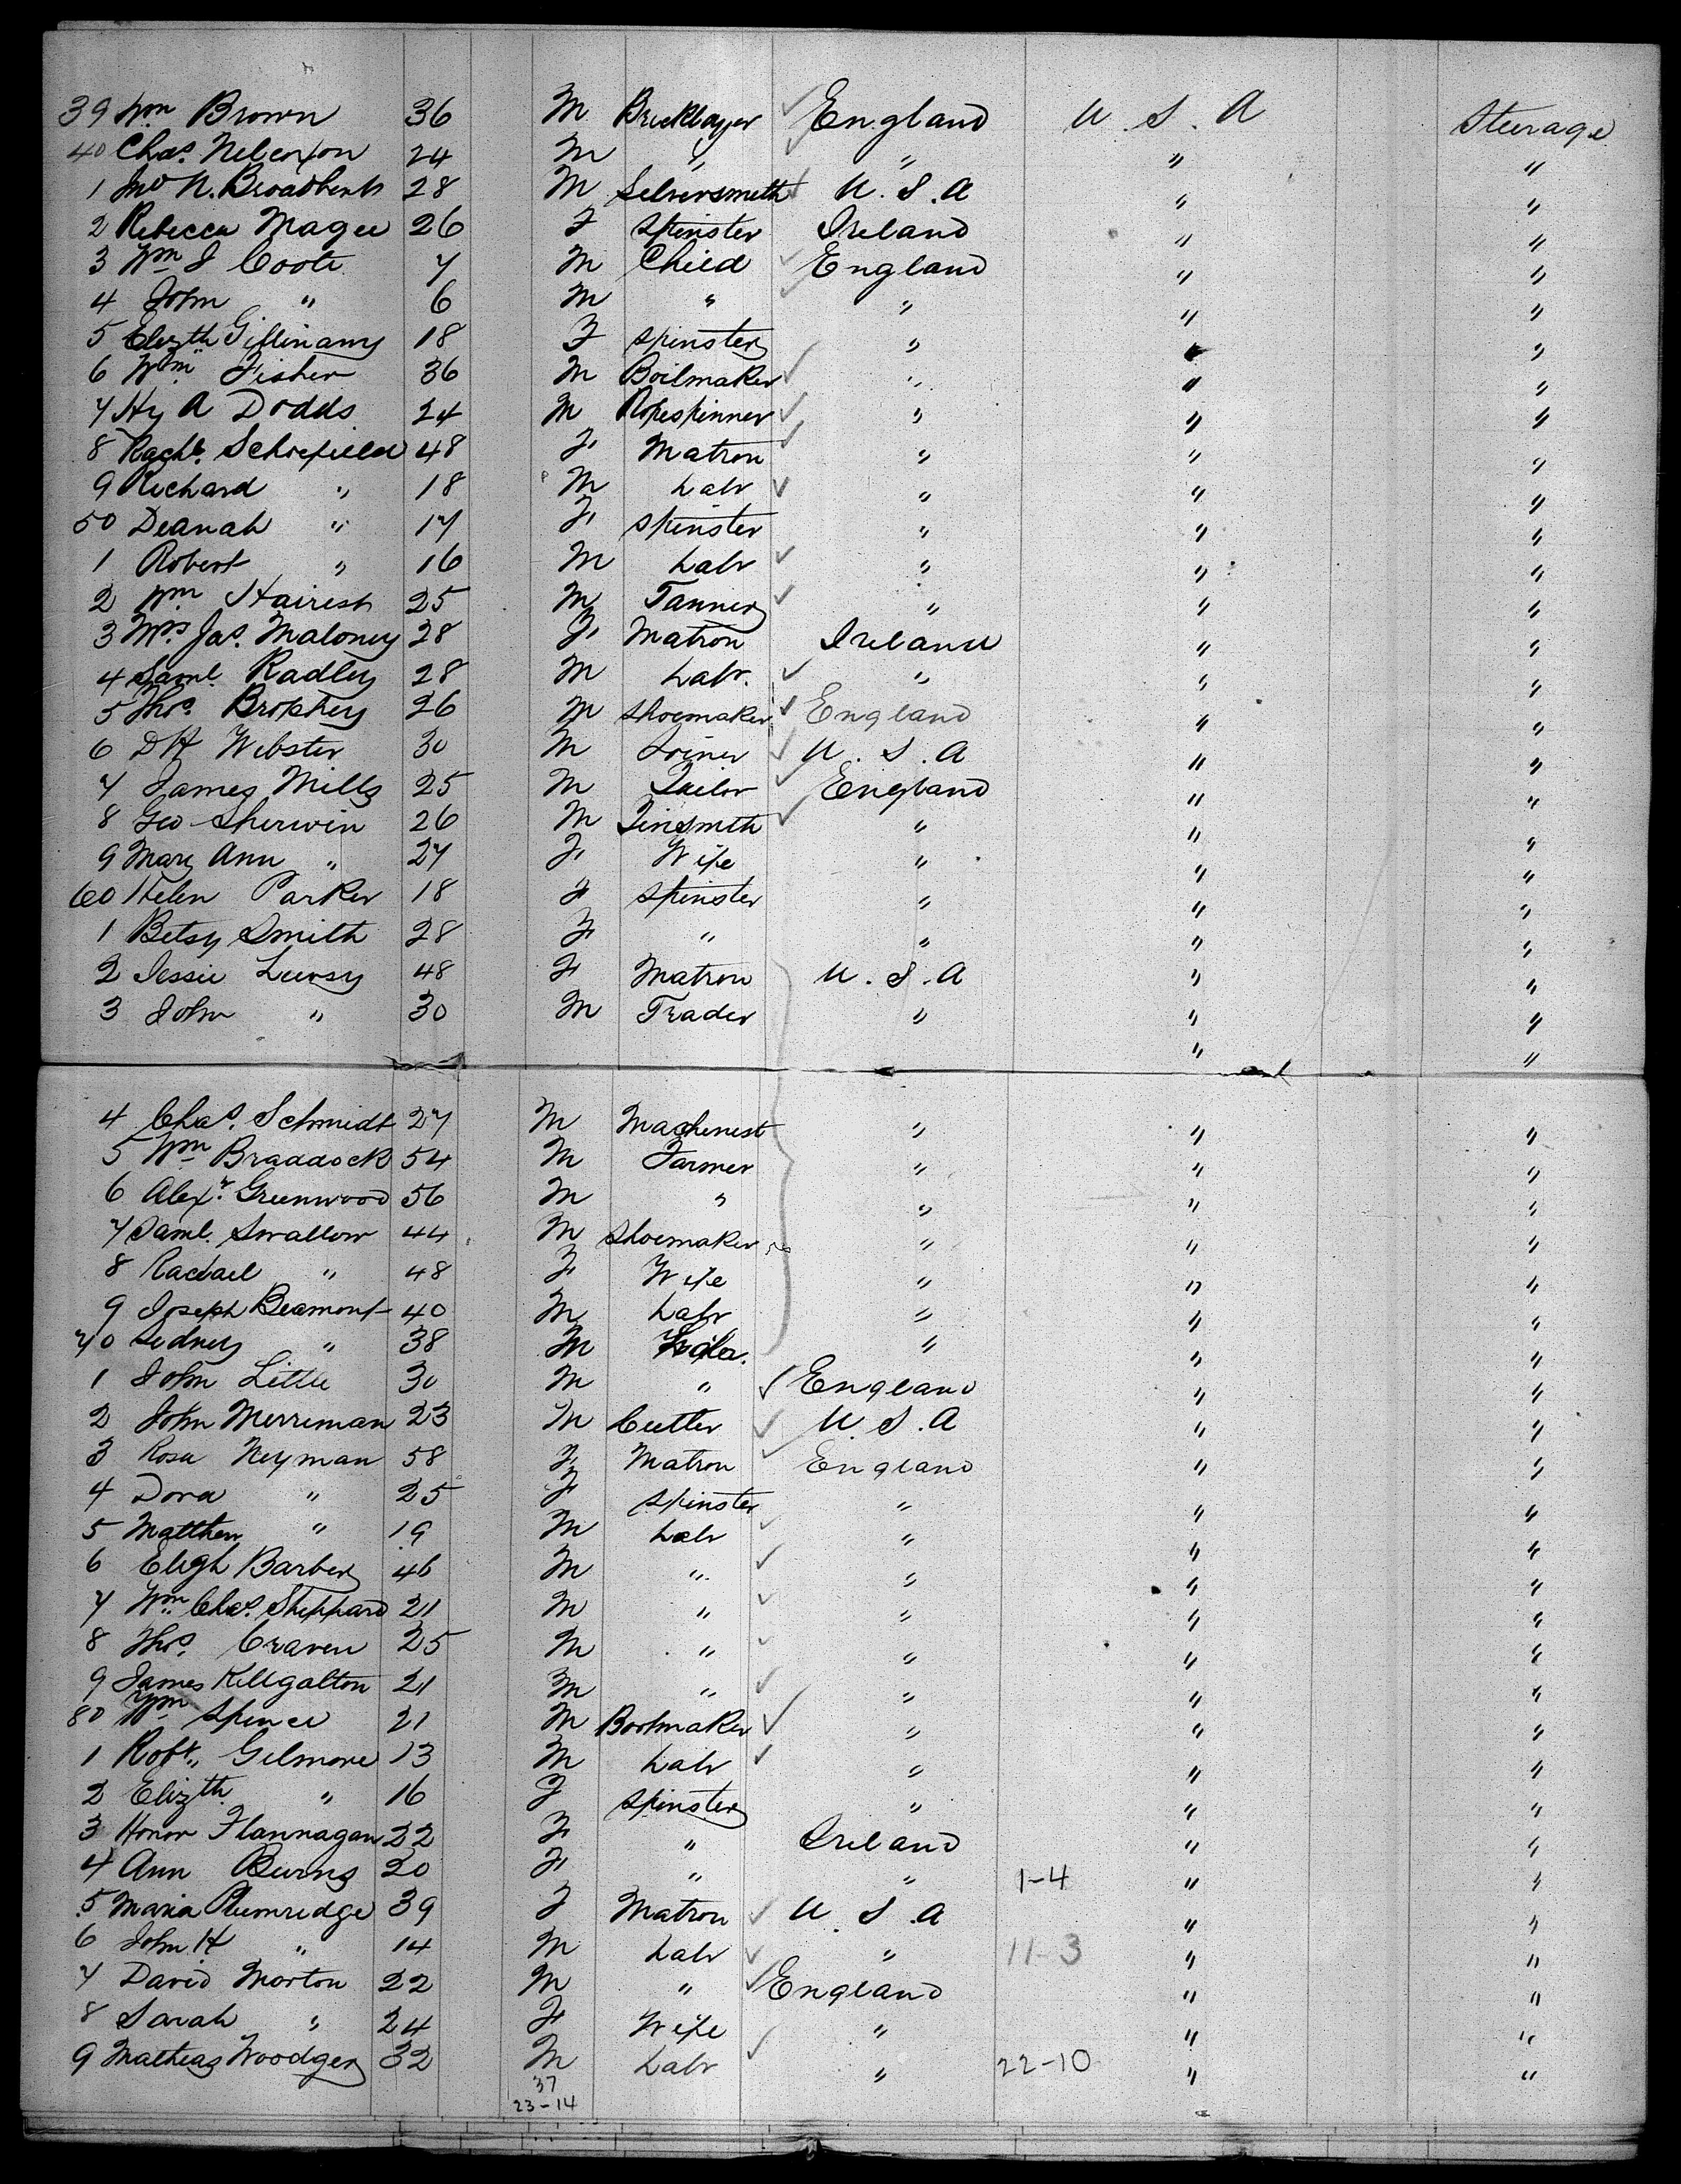 39 Wm Brown 36 M Bricklayer England U.S.A Steerage
40 Chas. 24 M " " " "
1 Jno N. Broadbent 28 M Silversmith U.S.A " "
2 Rebecca Magee 26 F Spinster Ireland " "
3 Wm J Coote 7 M Child England " "
4 John " 6 M " " " "
5 Elizth 18 F Spinster " " "
6 Wm Fisher 36 M Boilmaker " " "
7 Hy A Dodds 24 M Ropespinner " " "
8 Rachl. Schofield 48 F Matron " " "
9 Richard " 18 M Labr " " "
50 Deanah " 17 F Spinster " " "
1 Robert " 16 M Labr " " "
2 Wm 25 M Tanner " " "
3 Mrs Jas. Maloney 28 F Matron Ireland " "
4 Saml. Radley 28 M Labr. " " "
5 Thos. Brophey 26 M Shoemaker England " "
6 DH Webster 30 M Joiner U.S.A " "
7 James Mills 25 M Tailor England " "
8 Geo Sherwin 26 M Tinsmith " " "
9 Mary Ann " 27 F Wife " " "
60 Helen Parker 18 F Spinster " " "
1 Betsy Smith 28 F " " " "
2 Jessie 48 F Matron U.S.A " "
3 John " 30 M Trader " " "
" "
4 Chas. Schmidt 27 M Machenest " " "
5 Wm Braddock 54 M Farmer " " "
6 Alexr. Greenwood 56 M " " " "
7 Saml. Swallow 44 M Shoemaker " " "
8 Rachael " 48 F Wife " " "
9 Joseph Beamont 40 M Labr " " "
70 Sedney " 38 M " " "
1 John Little 30 M " England " "
2 John Merriman 23 M Cutler U.S.A " "
3 Rosa Neyman 58 F Matron England " "
4 Dora " 25 F Spinster " " "
5 Matthew " 19 M Labr " " "
6 Eligh Barber 46 M " " " "
7 Wm Chas. Sheppard 21 M " " " "
8 Thos. Craven 25 M " " " "
9 James Killgalton 21 M " " " "
80 Wm Spence 21 M Bootmaker " " "
1 Robt. Gilmore 13 M Labr " " "
2 Elizth " 16 F Spinster " " "
3 Honor Flannagan 22 F " Ireland " "
4 Ann Burns 20 F " " 1-4 " "
5 Maria Plumridge 39 F Matron U.S.A " "
6 John H " 14 M Labr " 11-3 " "
7 David Morton 22 M " England " "
8 Sarah " 24 F Wife " " "
9 Mathias Woodger 32 M Labr " 22-10 " "
37
23-14